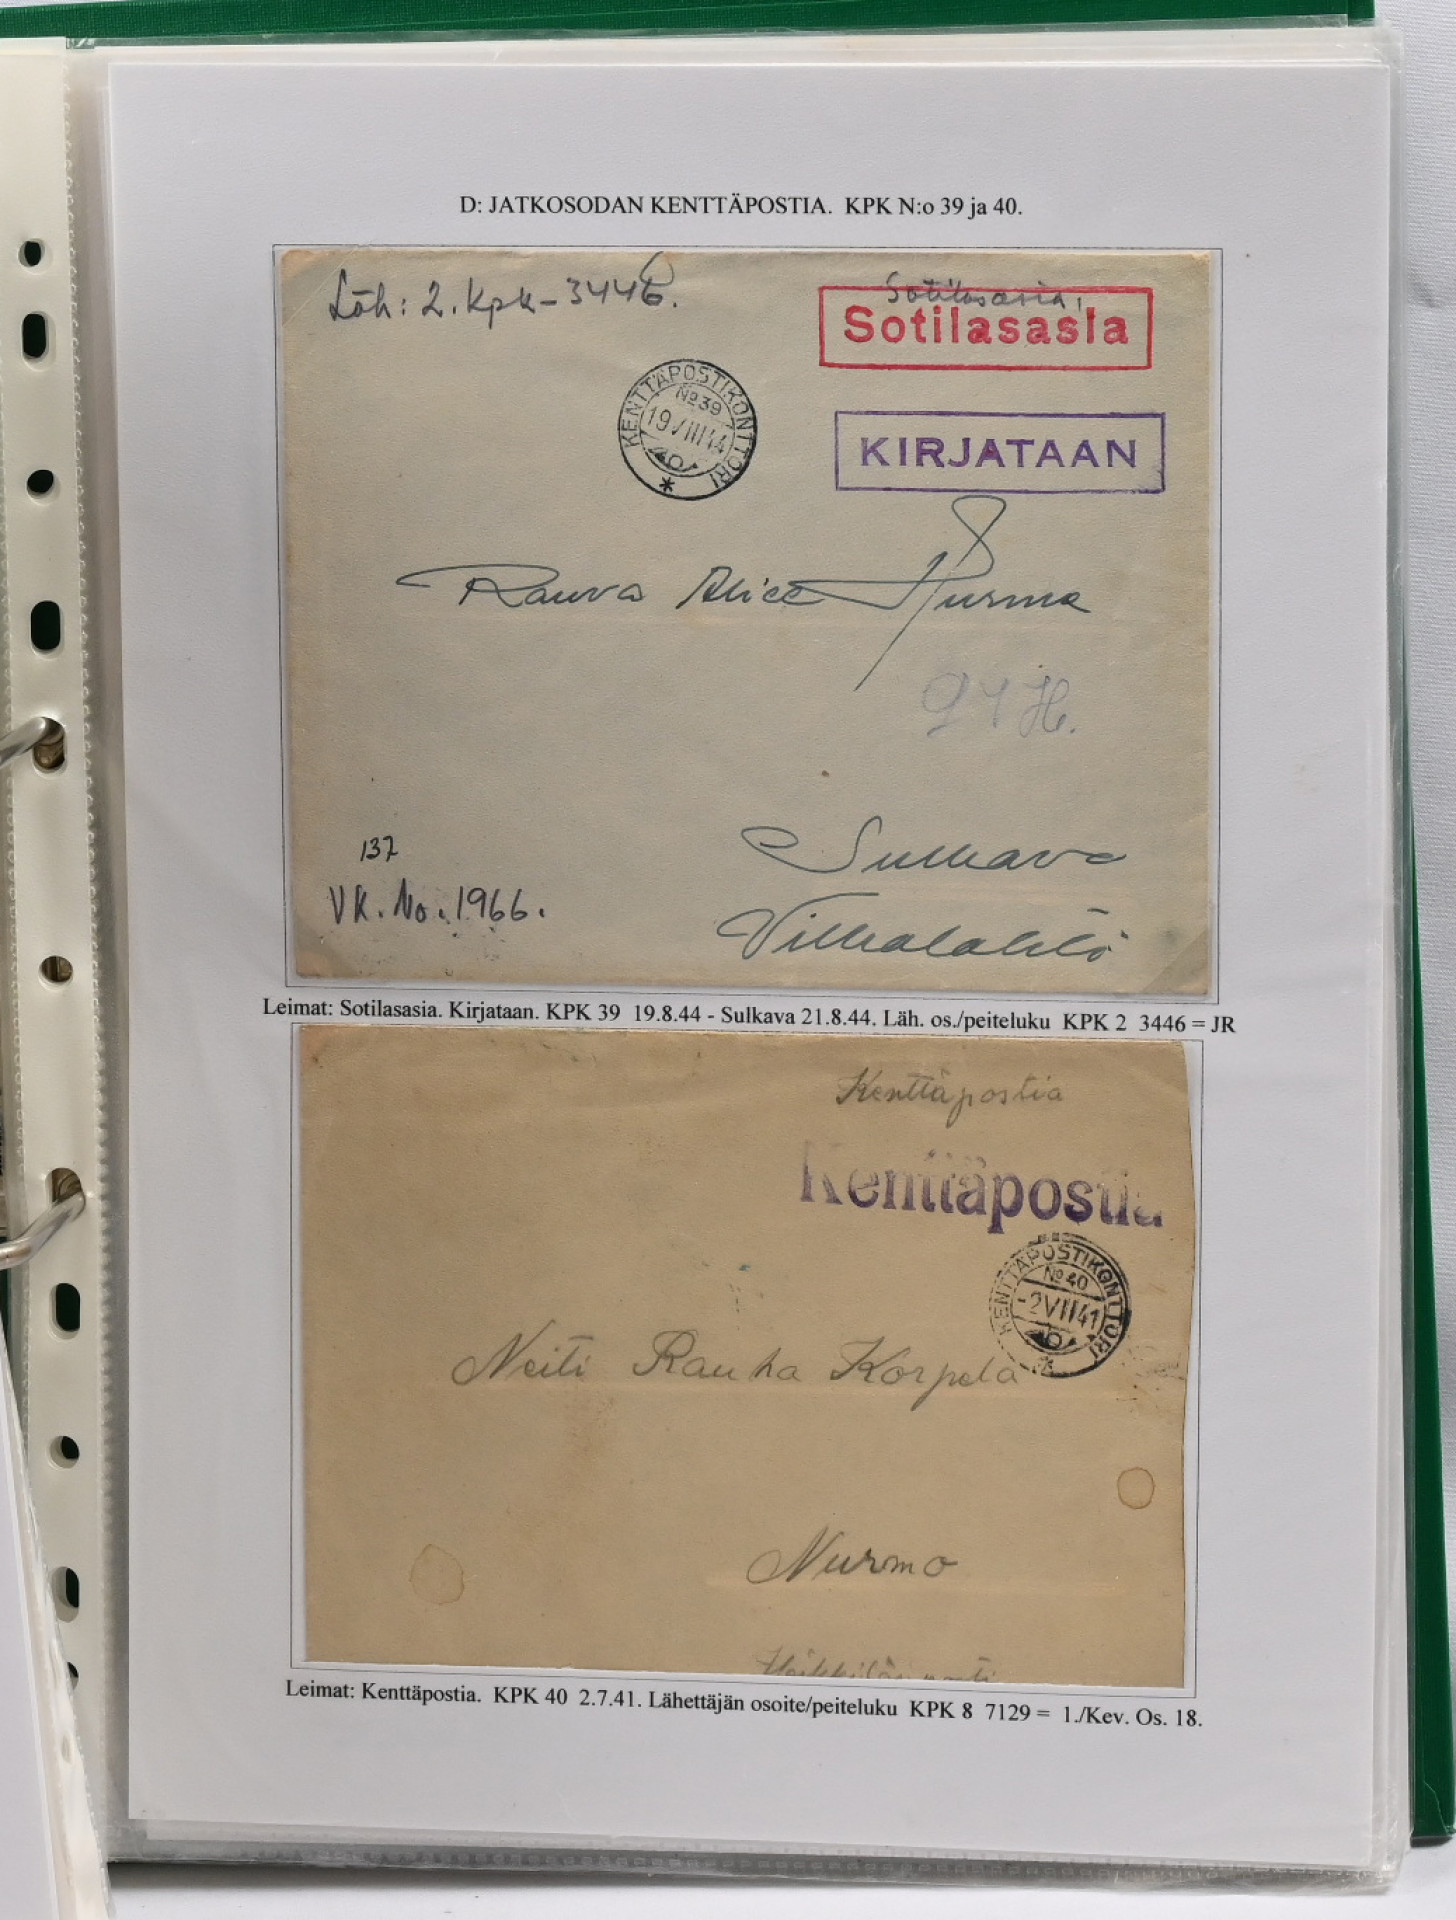 D: JATKOSODAN KENTTÄPOSTIA. KPK N:o 39 ja 40.
Läh: 2. Kpk - 3446.
Sotilasasia.
Sotilasasia
KENTTÄPOSTIKONTTORI
No 39
19 VIII 44
KIRJATAAN
Rouva Alice Hurma
94 H.
137
VK. No. 1966.
Sulkava
Vilkalahti
Leimat: Sotilasasia. Kirjataan. KPK 39 19.8.44 - Sulkava 21.8.44. Läh. os./peiteluku KPK 2 3446 = JR
Kenttäpostia
Kenttäpostia
KENTTÄPOSTIKONTTORI
No 40
-2 VII 41
Neiti Rauha Korpela
Nurmo
Leimat: Kenttäpostia. KPK 40 2.7.41. Lähettäjän osoite/peiteluku KPK 8 7129 = 1./Kev. Os. 18.